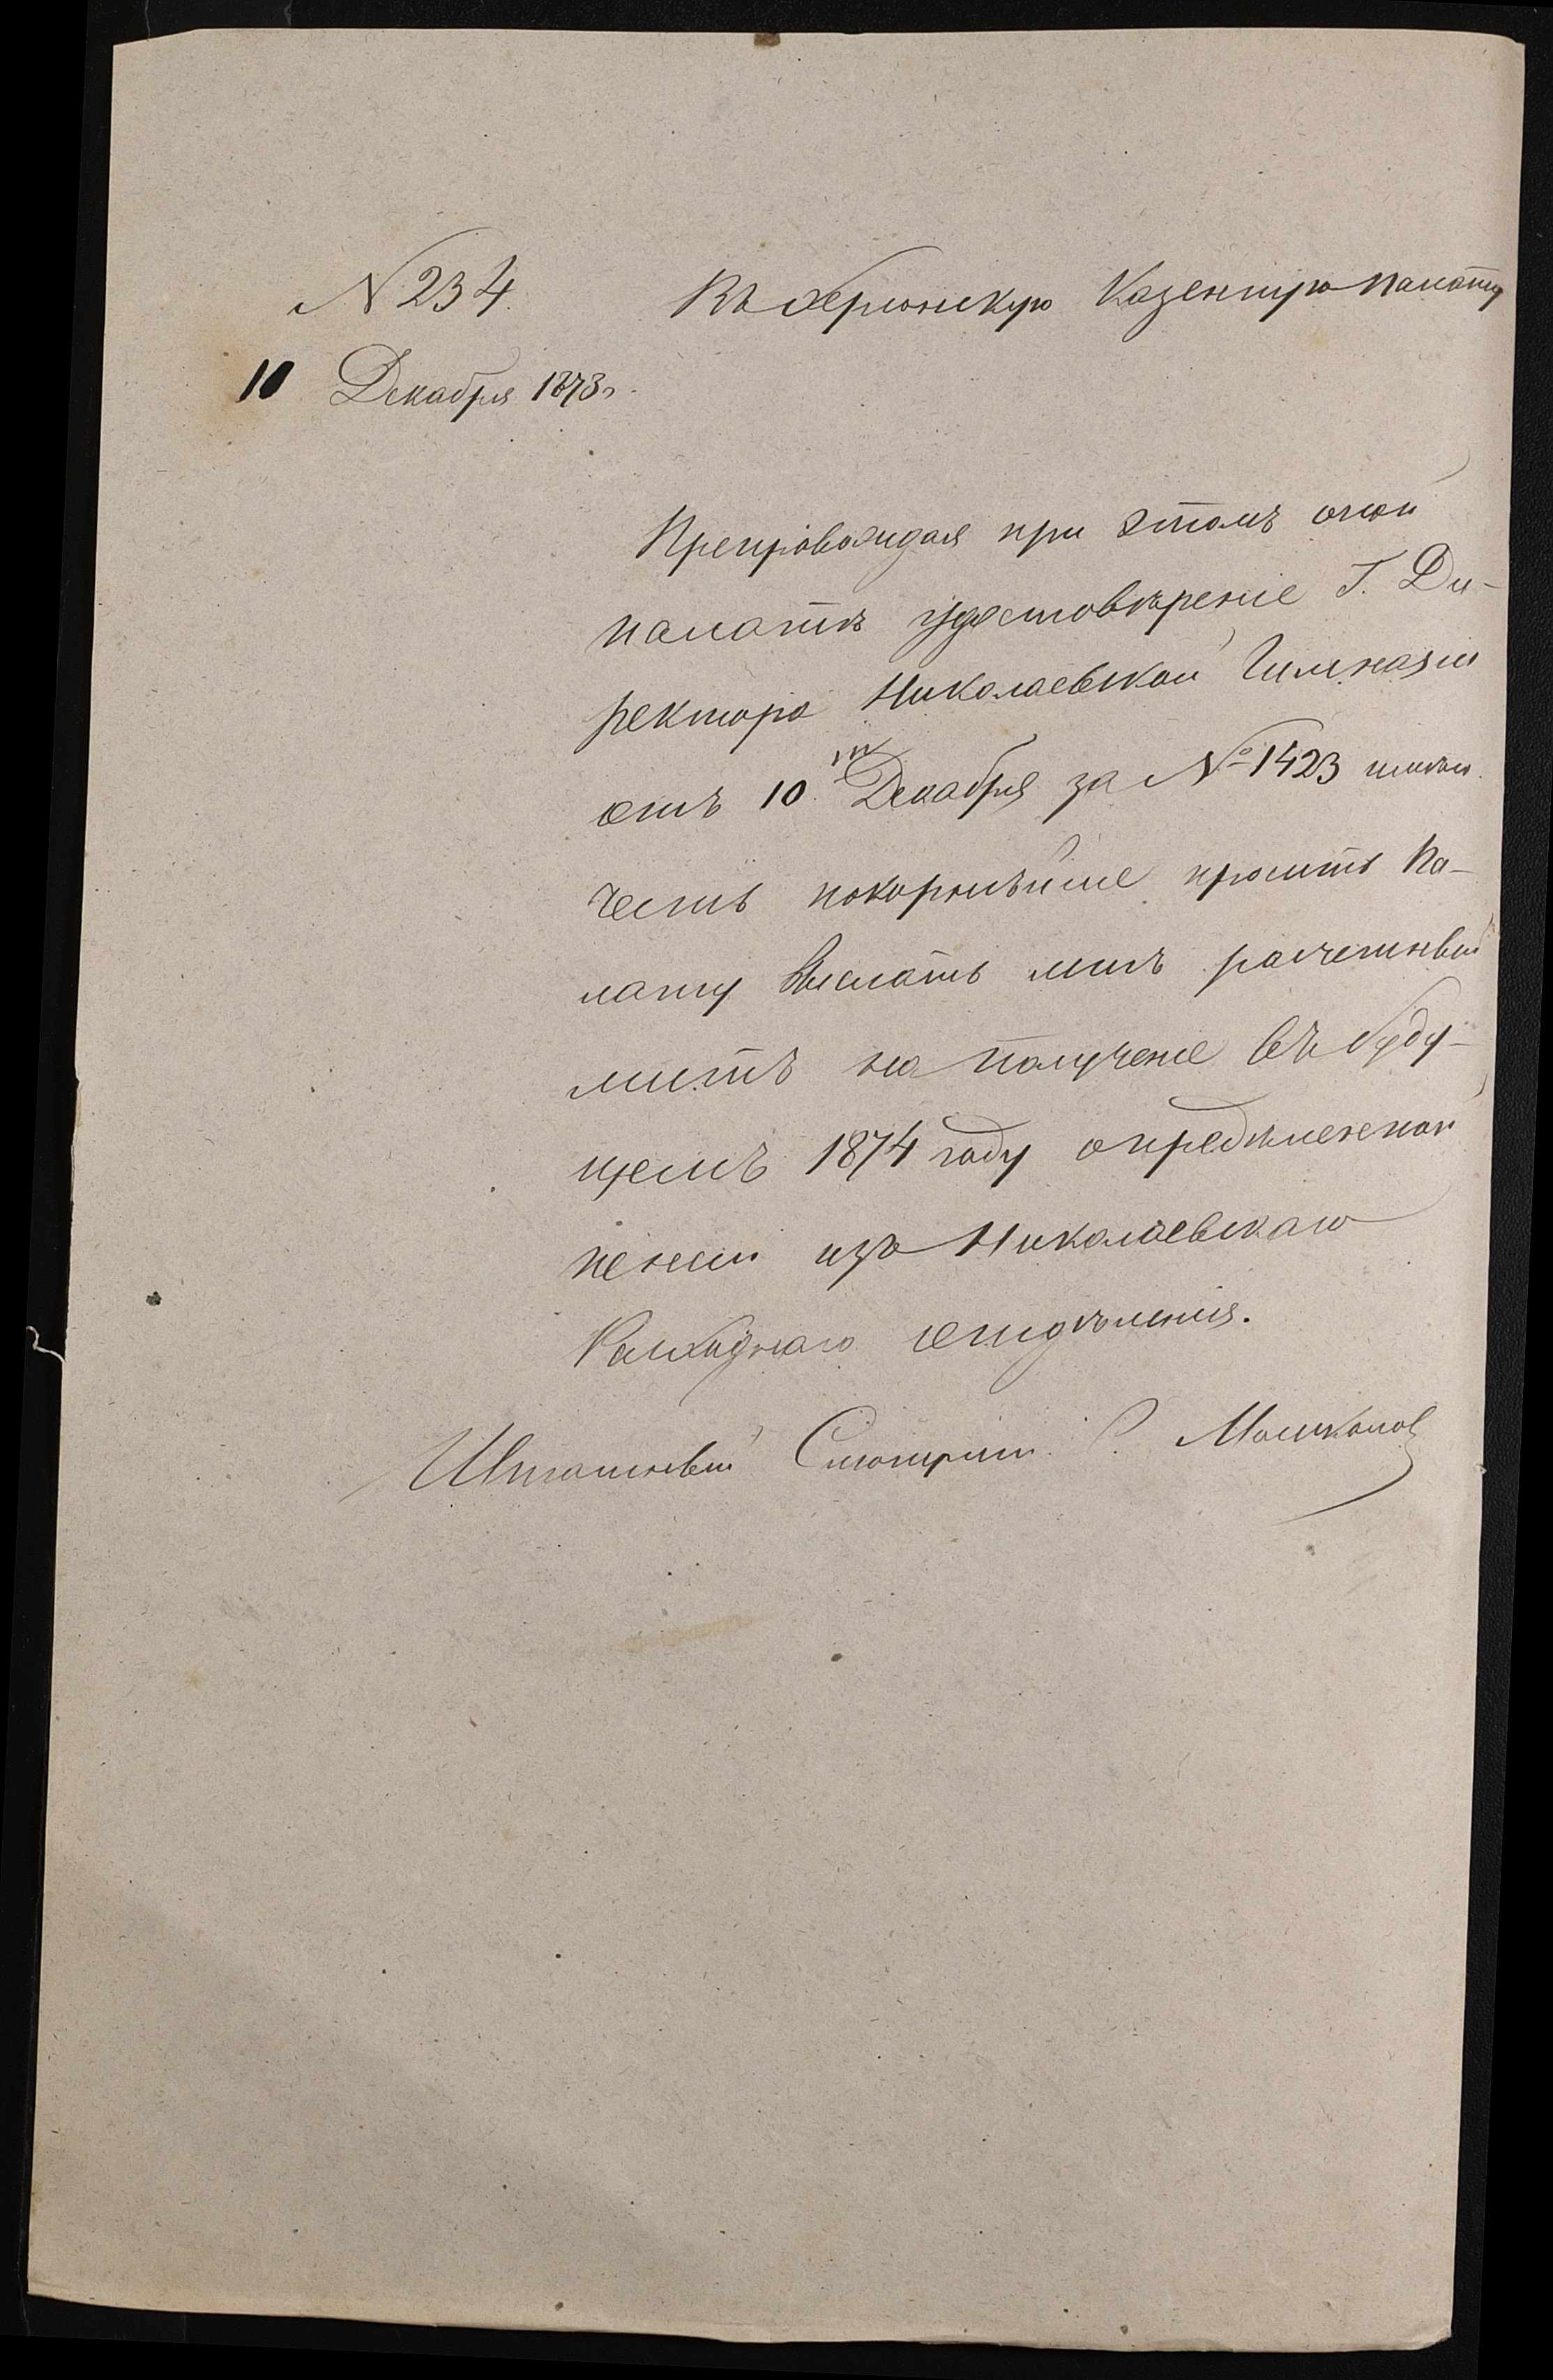 N 234.
Въ Херсонскую Казенную палату
10 Декабря 1873 г.
Препровождая при этомъ оной
палатѣ удостовѣреніе Г. Ди-
ректора Николаевской Гимназіи
отъ 10 Декабря за № 1423 имѣю
честь покорнѣйше просить Па-
лату выслать мнѣ расчетный
листъ на полученіе въ буду-
щемъ 1874 году опредѣленной
пенсіи изъ Николаевскаго
Расходнаго отдѣленія.
Штатный Смотритель